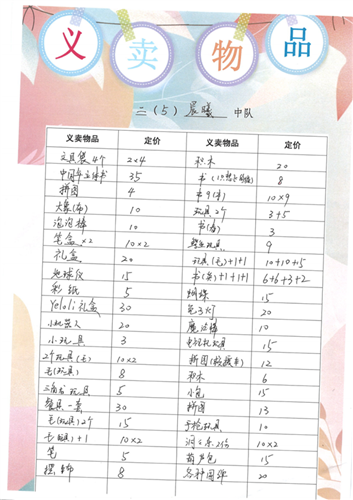 义卖物品
二（5）晨曦 中队
义卖物品 定价 义卖物品 定价
文具袋4个 2×4 积木 20
中国年立体书 35 书 8
拼图 4 书9(本) 10×9
大象(布) 10 玩具2个 3+5
泡泡棒 10 书(本) 3
笔盒×2 10×2 玩具 9
礼盒 20 玩具(毛)+1+1 10+10+5
地球仪 15 书(本)+1+1+1 6+6+3+2
彩纸 5 蝴蝶 15
Yeloli礼盒 30 兔子灯 20
小机器人 20 魔法棒 10
小玩具 3 电视机玩具 15
2个玩具(毛) 10×2 拼图(数独本) 12
毛(玩具) 8 积木 6
三角龙玩具 5 小包 15
餐具一套 30 拼图 13
毛(玩具)2个 15 手枪玩具 10
毛(玩具)+1 10×2 2份 10×2
笔 5 葫芦包 15
摆饰 8 各种图章 20